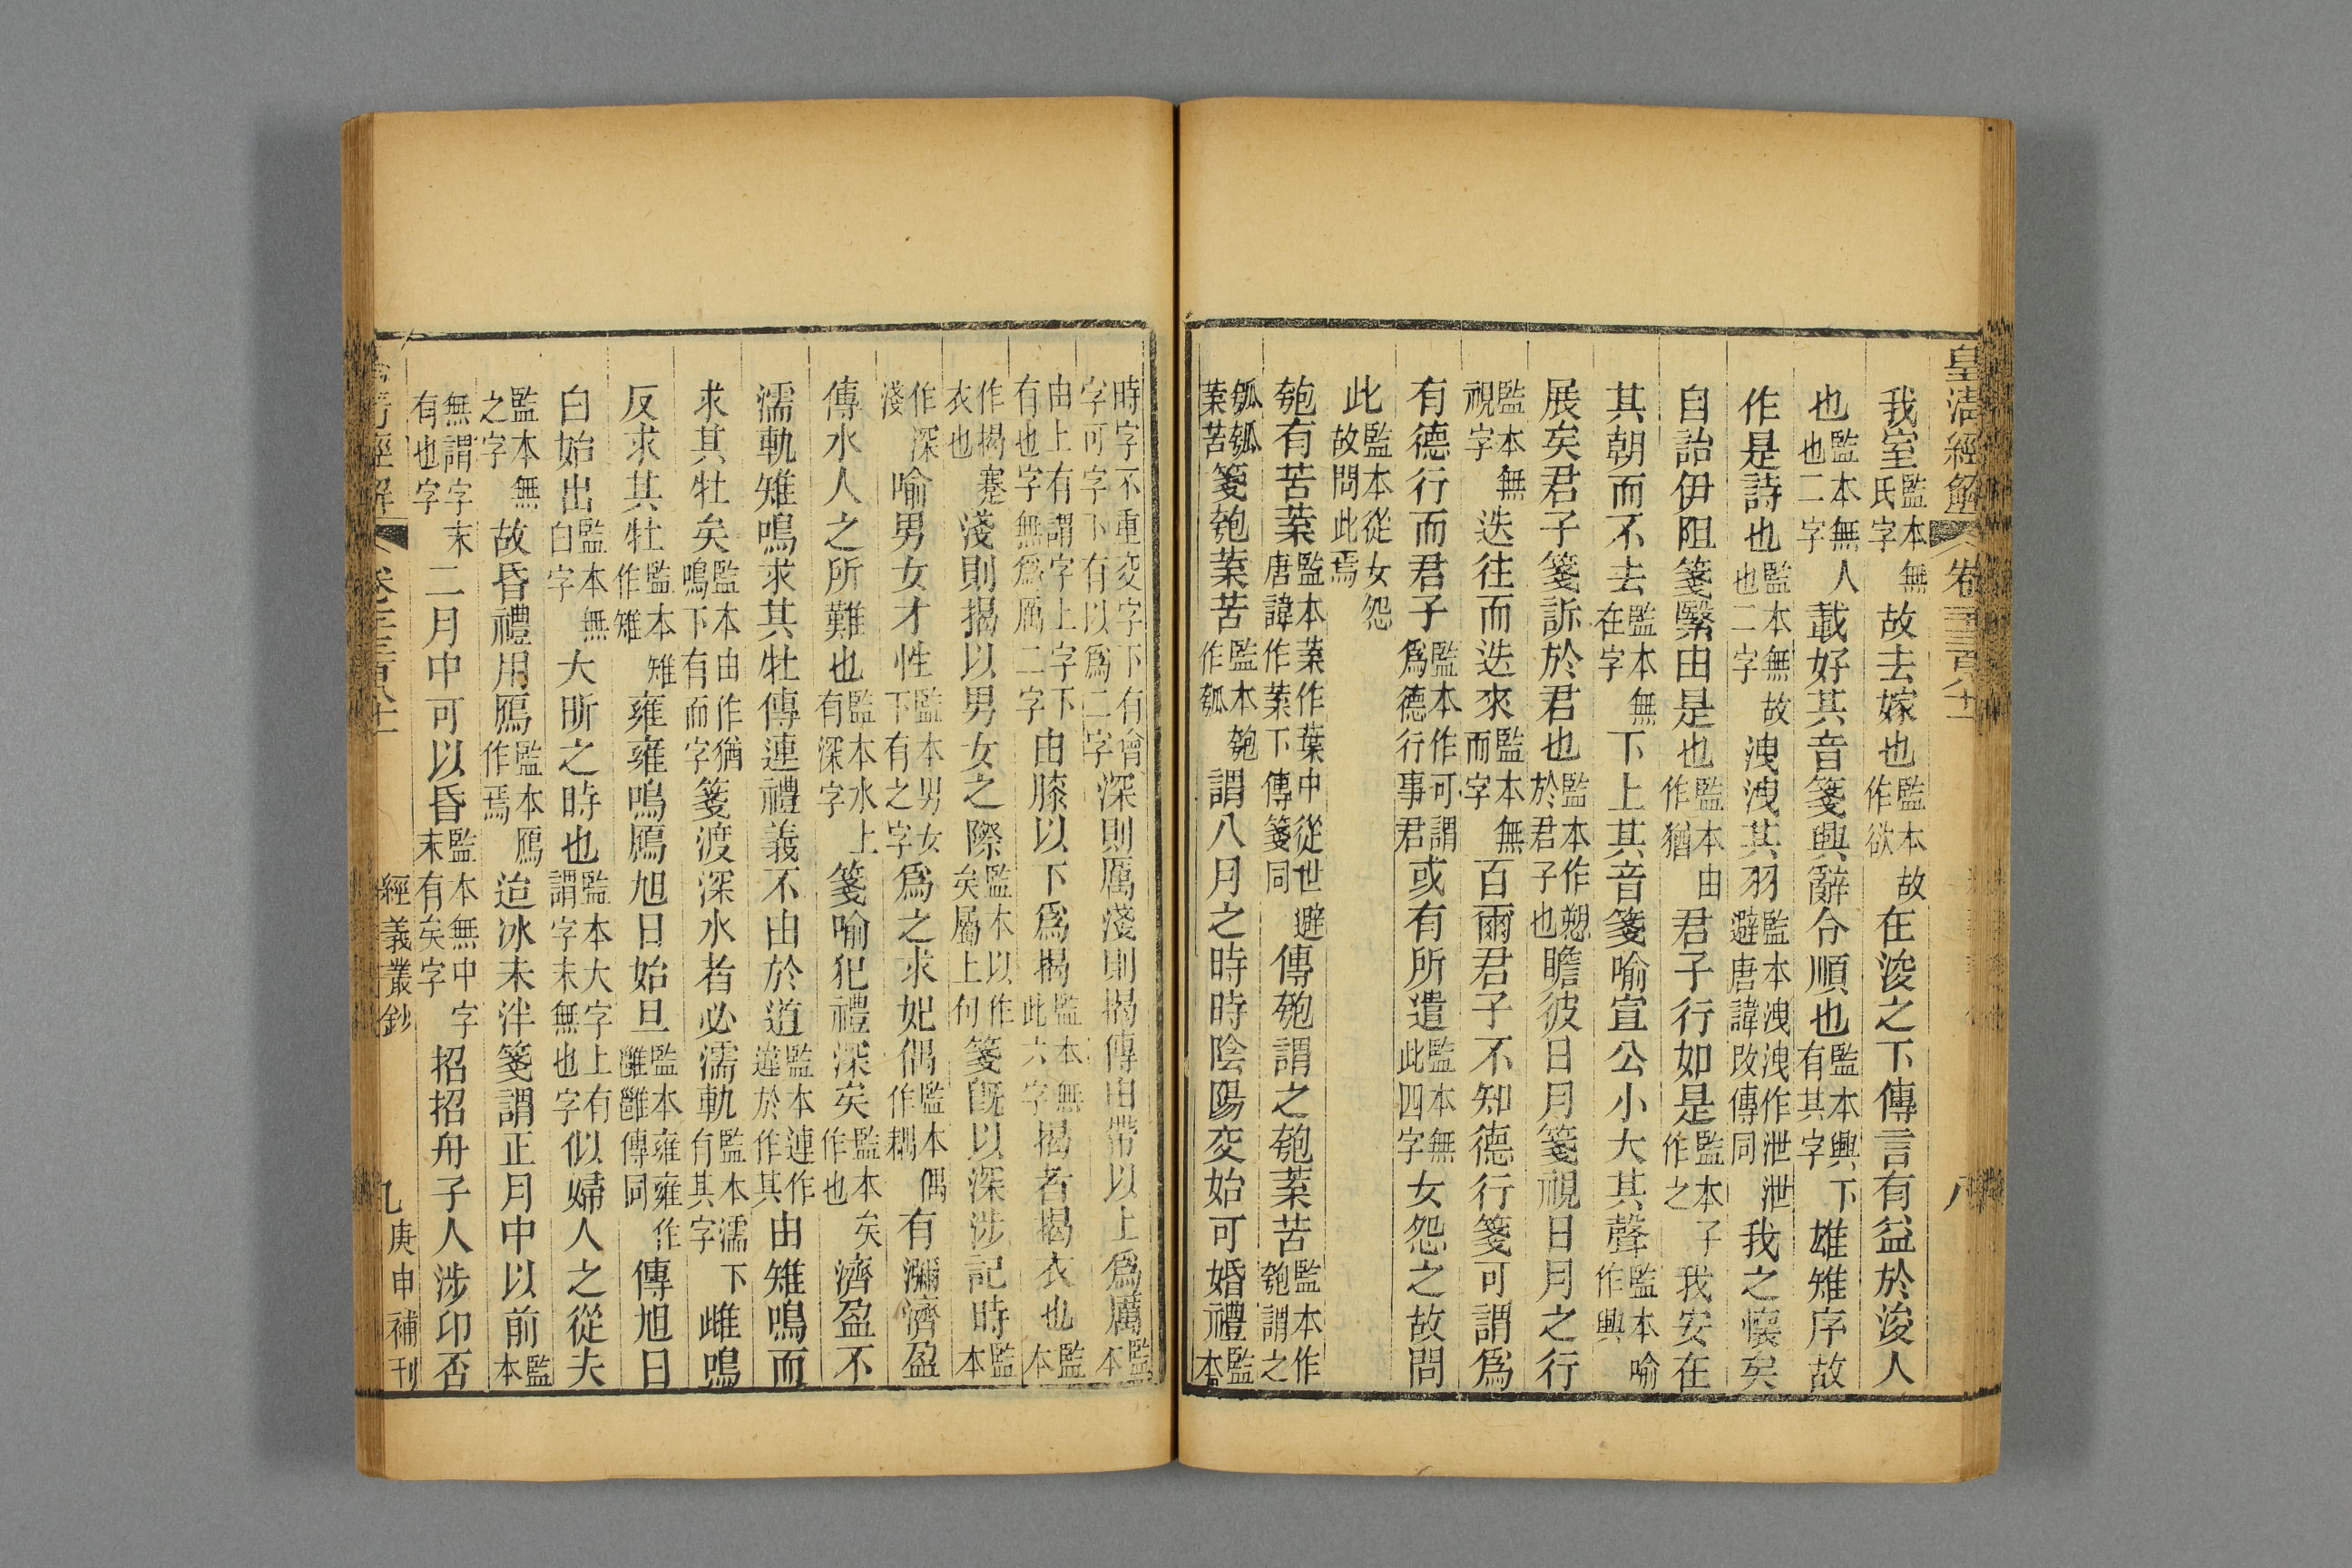 皇清經解 卷 八
我室監本無氏字故去嫁也監本故作欲在浚之下傳言有益於浚人
也監本無人也二字載好其音箋興辭令順也監本興下有其字雄雉序故
作是詩也監本無故也二字洩洩其羽監本洩洩作泄泄避唐諱改傳同我之懷矣
自詒伊阻箋繄由是也監本由作猶君子行如是監本子作之我安在
其朝而不去監本無在字下上其音箋喻宣公小大其聲監本喻作興
展矣君子箋訴於君也監本作愬於君子也瞻彼日月箋視日月之行
監本無視字迭往而迭來監本無而字百爾君子不知德行箋可謂爲
有德行而君子監本作可謂爲德行事君或有所遣監本無此四字女怨之故問
此監本從女怨故問此焉
匏有苦葉監本葉作葉中從世避唐諱作葉下傳箋同傳匏謂之匏葉苦監本作匏謂之
瓠瓠葉苦箋匏葉苦監本匏作瓠謂八月之時時陰陽交始可婚禮監本
時字不重交字下有會字可字下有以爲二字深則厲淺則揭傳由帶以上爲厲監本
由上有謂字上字下有也字無爲厲二字由膝以下爲揭監本無此六字揭者揭衣也監本
作揭褰衣也淺則揭以男女之際監本以作矣屬上句箋旣以深涉記時監本
作深淺喻男女才性監本男女下有之字爲之求妃偶監本偶作耦有瀰濟盈
傳水人之所難也監本水上有深字箋喻犯禮深矣監本矣作也濟盈不
濡軌雉鳴求其牡傳連禮義不由於道監本連作違於作其由雉鳴而
求其牡矣監本由作猶鳴下有而字箋渡深水者必濡軌監本濡下有其字雌鳴
反求其牡監本雉作雉雍雍鳴鴈旭日始旦監本雍雍作雝雝傳同傳旭日
白始出監本無白字大昕之時也監本大字上有謂字末無也字似婦人之從夫
監本無之字故昏禮用鴈監本鴈作焉迨冰未泮箋謂正月中以前監本
無謂字末有也字二月中可以昏監本無中字末有矣字招招舟子人涉卬否
經義叢鈔 九 庚申補刊